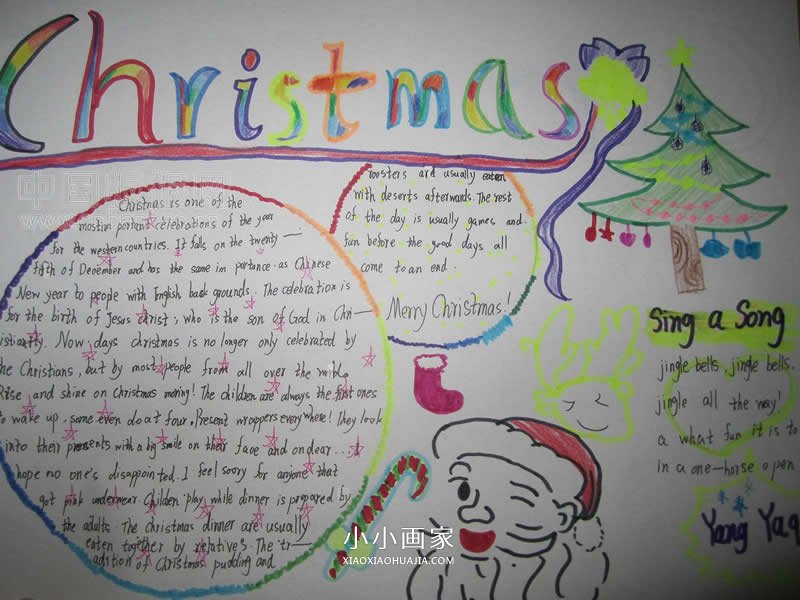 Christmas
Christmas is one of the
mostim portant celebrations of the year
for the western countries. It falls on the twenty—
fifth of December and has the same im portance as Chinese
New year to people with English back grounds. The celebration is
for the birth of Jesus christ, who is the son of God in Chri—
istianity. Now days christmas is no longer only celebrated by
the Christians, but by most people from all over the world.
Rise, and shine on Christmas morning! The children are always the first ones
to wake up, some even do at four. Present wrappers everywhere! They look
into their presents with a big smile on their face and ondear...
hope no one's disappointed. I feel sorry for anyone that
got pink underwear Childen play while dinner is prepared by
the adults. The christmas dinner are usually
eaten together by relatives. The tr—
adition of Christmas pudding and
roosters are usually eaten
with deserts afterwards. The rest
of the day is usually games and
fun before the good days all
come to an end.
Merry Christmas!
Sing a Song
jingle bells, jingle bells.
jingle all the way!
a what fun it is to
in a one-horse open
Yang Yaq
小小画家
XIAOXIAOHUAJIA.COM